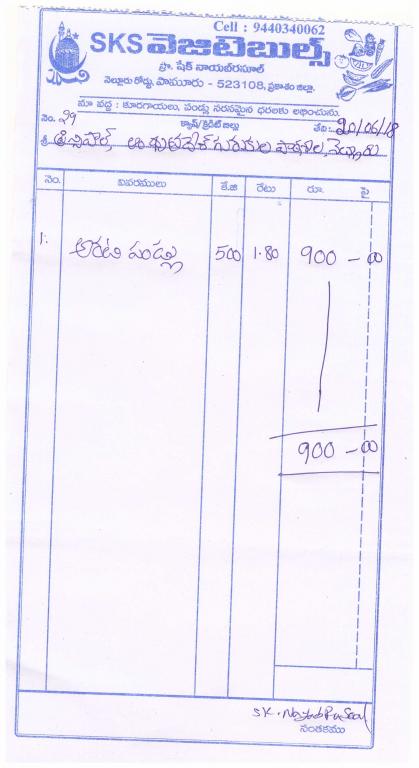 Cell : 9440340062
SKS వెజిటెబుల్స్
ప్రొ. షేక్ నాయబ్‌రసూల్
నెల్లూరు రోడ్డు, పామూరు - 523108, ప్రకాశం జిల్లా.
మా వద్ద : కూరగాయలు, పండ్లు సరసమైన ధరలకు లభించును.
క్యాష్/క్రెడిట్ బిల్లు
నెం. 29 తేది: 20/06/18
శ్రీ ప్రిన్సిపాల్, గురుకుల పాఠశాల,
నెం. వివరములు కే.జి రేటు రూ. పై
1. అరటి పండ్లు 500 1.80 900 - 00
900 - 00
SK. NayabRasool
సంతకము